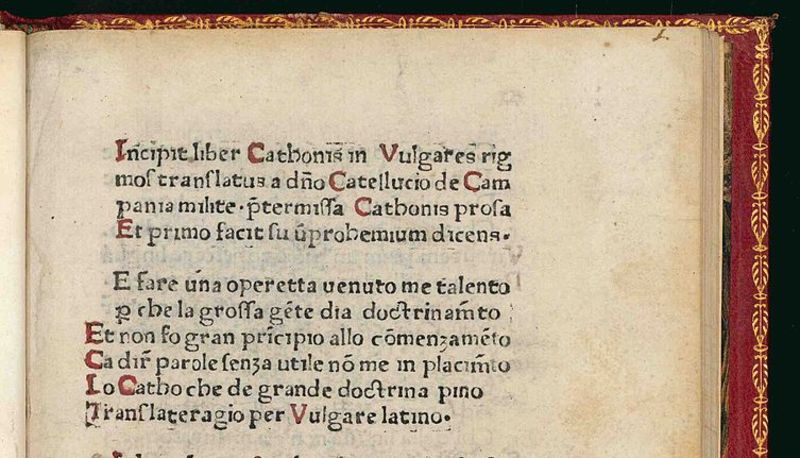 Incipit liber Cathonis in Vulgares rig
mos translatus a dño Catellucio de Cam
pania milite · p̄termissa Cathonis prosa
Et primo facit su ū prohemium dicens ·
E fare una operetta uenuto me talento
ꝑ che la grossa gēte dia doctrinam̄to
Et non fo gran prīcipio allo cōmenzamēto
Ca dir̄ parole senza utile nō me in placim̄to
Lo Catho che de grande doctrina pino
Translateragio per Vulgare latino ·